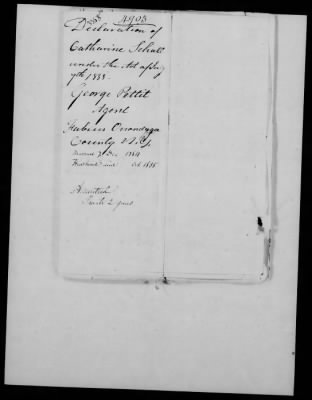 4903
Declaration of
Catharine Schall
under the Act of July
7th 1838.
George Pettit
Agent
Fabius Onondaga
County N.Y.
Married 3 Dec 1784
Husband died Oct 1828
Admitted